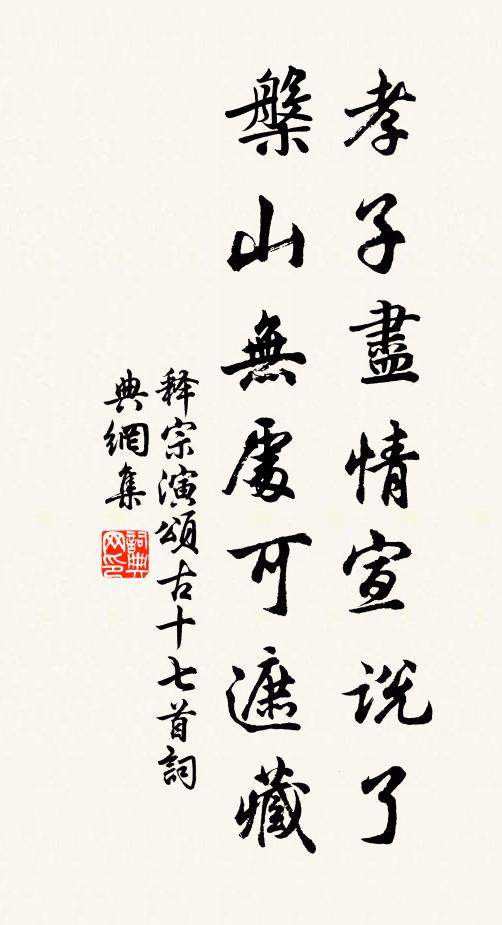 孝子盡情宣說了
槃山無處可遮藏
释宗演頌古十七首詞
典網集
詞典网印